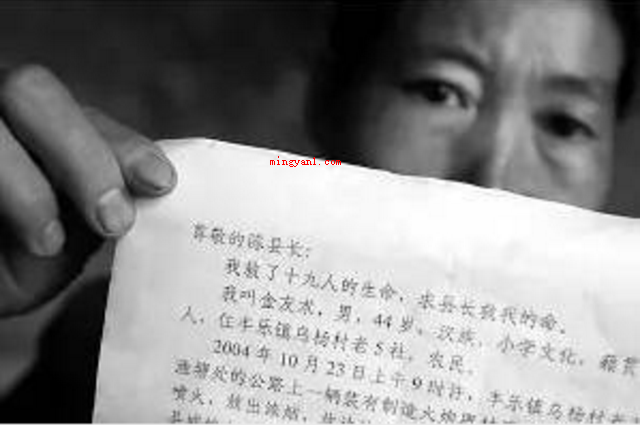 mingyan1.com
尊敬的陈县长:
我救了十九人的生命,求县长救我的命。
我叫金有术,男,44岁,汉族,小学文化,籍贯
人,住丰乐镇乌杨村老5社,农民。
2004年10月23日上午9时许,丰乐镇乌杨村
的公路上一辆装有制造火炮
喷火,放出浓烟,